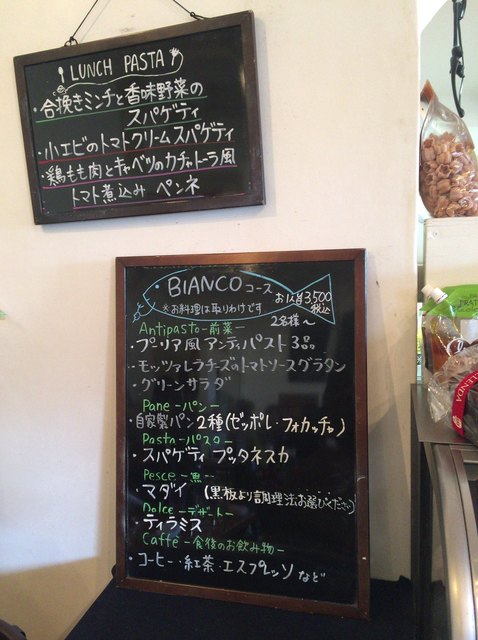 LUNCH PASTA
・合挽きミンチと香味野菜の
スパゲティ
・小エビのトマトクリームスパゲティ
・鶏もも肉とキャベツのカチャトーラ風
トマト煮込み ペンネ
BIANCOコース
お1人様3,500
税込
※お料理は取りわけです
2名様～
Antipasto-前菜-
・プーリア風アンティパスト3品
・モッツァレラチーズのトマトソースグラタン
・グリーンサラダ
Pane-パン-
・自家製パン2種(ゼッポレ・フォカッチャ)
Pasta-パスタ-
・スパゲティ プッタネスカ
Pesce-魚-
・マダイ (黒板より調理法お選びください)
Dolce-デザート-
・ティラミス
Caffe-食後のお飲み物-
・コーヒー・紅茶・エスプレッソ など